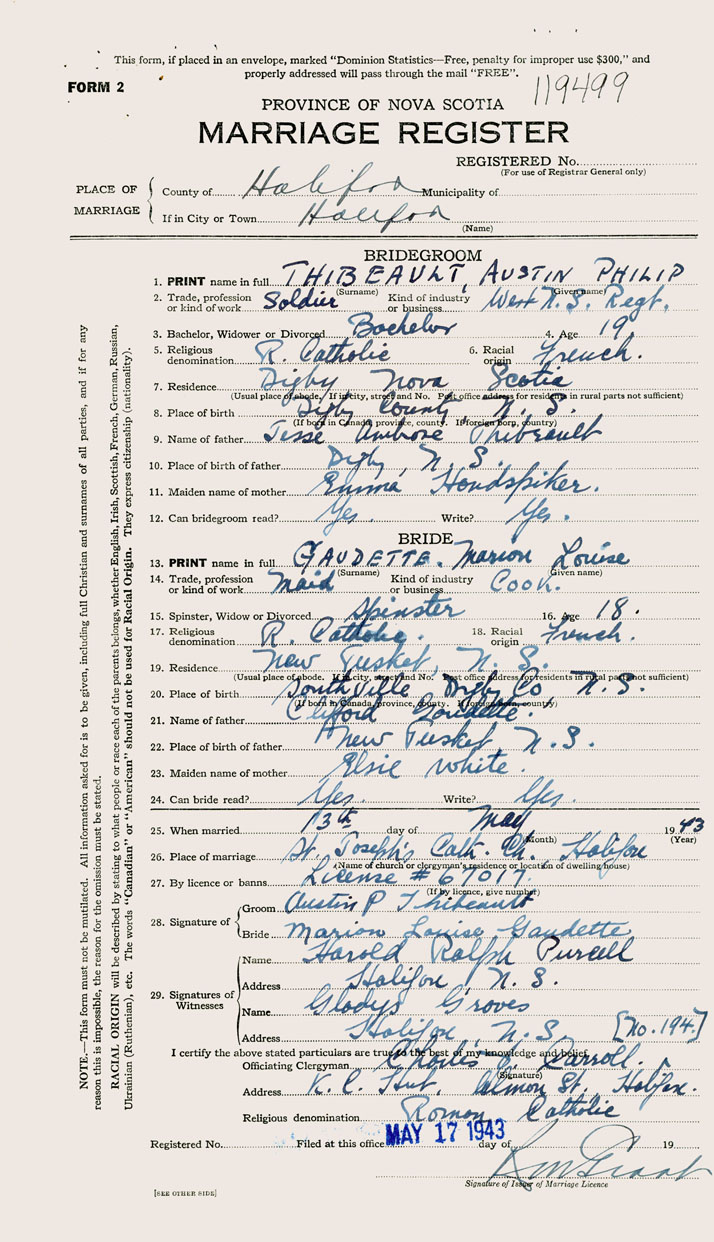 This form, if placed in an envelope, marked "Dominion Statistics—Free, penalty for improper use $300," and
properly addressed will pass through the mail "FREE".
FORM 2
119499
PROVINCE OF NOVA SCOTIA
MARRIAGE REGISTER
REGISTERED No.
(For use of Registrar General only)
PLACE OF MARRIAGE
County of Halifax Municipality of
If in City or Town Halifax
(Name)
BRIDEGROOM
1. PRINT name in full THIBEAULT, AUSTIN PHILIP
(Surname) (Given name)
2. Trade, profession or kind of work Soldier Kind of industry or business West N.S. Regt.
3. Bachelor, Widower or Divorced Bachelor 4. Age 19
5. Religious denomination R. Catholic 6. Racial origin French.
7. Residence Digby Nova Scotia
(Usual place of abode. If in city, street and No. Post office address for residents in rural parts not sufficient)
8. Place of birth Digby County, N. S.
(If born in Canada, province, county. If foreign born, country)
9. Name of father Jesse Ambrose Thibeault
10. Place of birth of father Digby, N. S.
11. Maiden name of mother Emma Handspiker.
12. Can bridegroom read? Yes. Write? Yes.
BRIDE
13. PRINT name in full GAUDETTE. Marion Louise
(Surname) (Given name)
14. Trade, profession or kind of work Maid Kind of industry or business Cook.
15. Spinster, Widow or Divorced Spinster 16. Age 18.
17. Religious denomination R. Catholic. 18. Racial origin French.
19. Residence New Tusket, N. S.
(Usual place of abode. If in city, street and No. Post office address for residents in rural parts not sufficient)
20. Place of birth Southville Digby Co N. S.
(If born in Canada, province, county. If foreign born, country)
21. Name of father Clifford Gaudette.
22. Place of birth of father New Tusket, N. S.
23. Maiden name of mother Elsie White.
24. Can bride read? Yes. Write? Yes.
25. When married 13th day of May 1943
(Month) (Year)
26. Place of marriage St. Joseph's Cath. Ch. Halifax
(Name of church or clergyman's residence or location of dwelling house)
27. By licence or banns License # 67017.
(If by licence, give number)
28. Signature of
Groom Austin P Thibeault
Bride Marion Louise Gaudette
29. Signatures of Witnesses
Name Harold Ralph Purcell
Address Halifax, N. S.
Name Gladys Groves
Address Halifax, N. S. [No. 194.]
I certify the above stated particulars are true to the best of my knowledge and belief.
Officiating Clergyman Charles Carroll.
(Signature)
Address K. C. Hut, Almon St. Halifax.
Religious denomination Roman Catholic
Registered No. Filed at this office MAY 17 1943 day of 19
Signature of Issuer of Marriage Licence
[SEE OTHER SIDE]
NOTE.—This form must not be mutilated. All information asked for is to be given, including full Christian and surnames of all parties, and if for any
reason this is impossible, the reason for the omission must be stated.
RACIAL ORIGIN will be described by stating to what people or race each of the parents belongs, whether English, Irish, Scottish, French, German, Russian,
Ukrainian (Ruthenian), etc. The words "Canadian" or "American" should not be used for Racial Origin. They express citizenship (nationality).